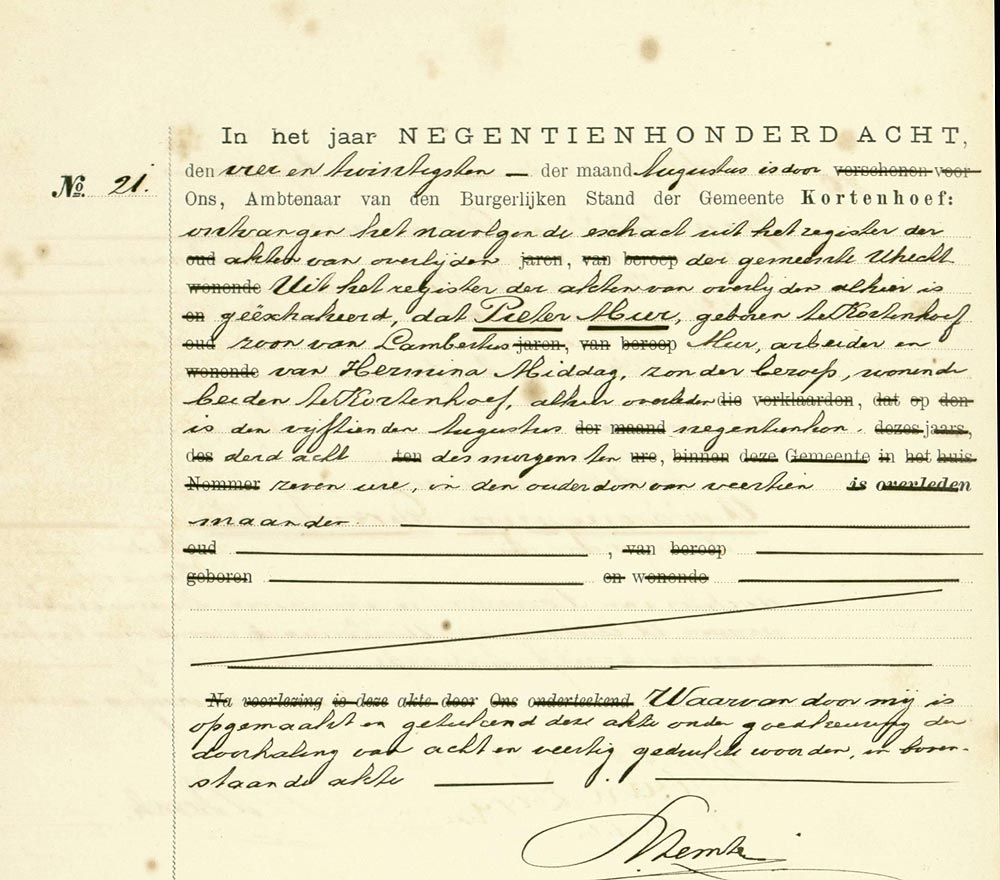 In het jaar NEGENTIENHONDERD ACHT,
No. 21.
den vier en twintigsten — der maand Augustus is door verschenen voor
Ons, Ambtenaar van den Burgerlijken Stand der Gemeente Kortenhoef:
ontvangen het navolgende extract uit het register der
oud akten van overlijden jaren, van beroep der gemeente Utrecht
wonende Uit het register der akten van overlijden alhier is
en geëxtraheerd, dat Pieter Muur, geboren te Kortenhoef
oud zoon van Lambertus jaren, van beroep Muur, arbeider en
wonende van Hermina Middag, zonder beroep, wonende
beiden te Kortenhoef, alhier overleden die verklaarden, dat op den
is den vijftienden Augustus der maand negentienhon- dezes jaars,
des derd acht ten des morgens ten ure, binnen deze Gemeente in het huis
Nommer zeven ure, in den ouderdom van veertien is overleden
maanden
oud , van beroep
geboren en wonende
Na voorlezing is deze akte door Ons onderteekend. Waarvan door mij is
opgemaakt en geteekend deze akte onder goedkeuring der
doorhaling van acht en veertig gedrukte woorden, in boven-
staande akte